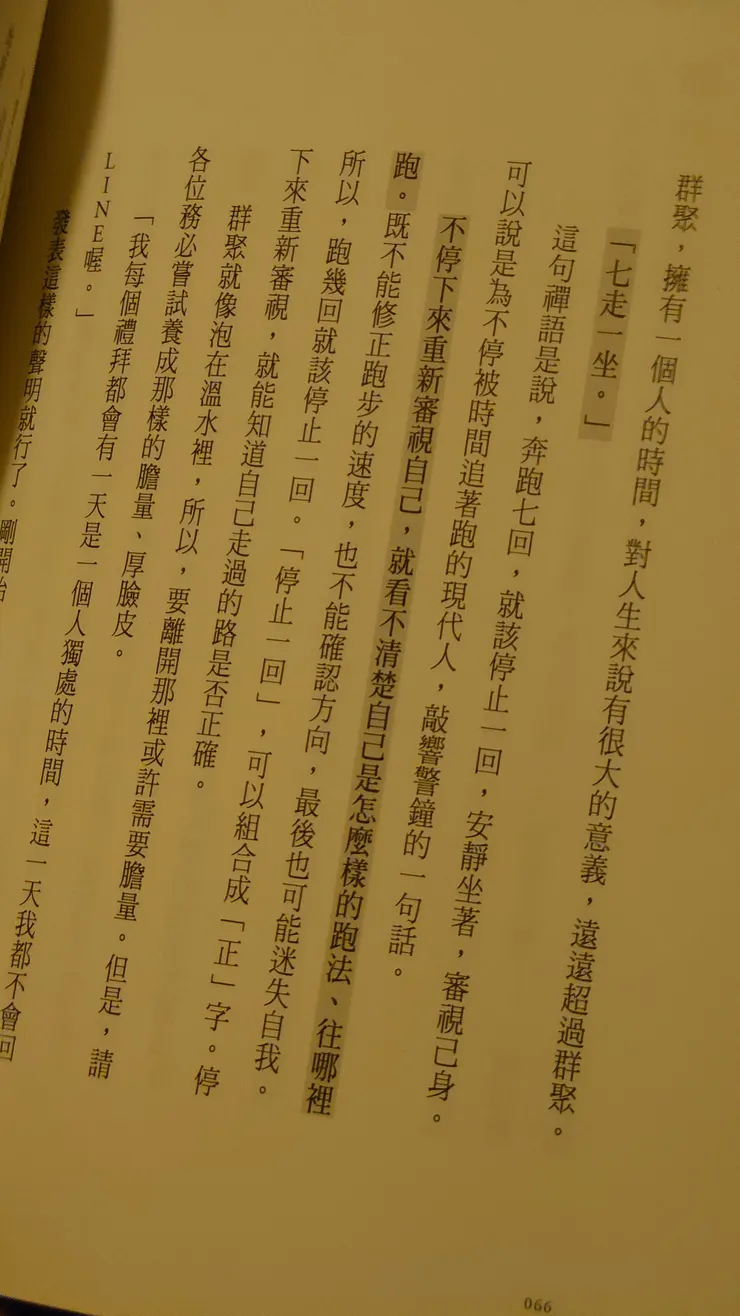 群聚，擁有一個人的時間，對人生來說有很大的意義，遠遠超過群聚。
「七走一坐。」
這句禪語是說，奔跑七回，就該停止一回，安靜坐著，審視己身。
可以說是為不停被時間追著跑的現代人，敲響警鐘的一句話。
不停下來重新審視自己，就看不清楚自己是怎麼樣的跑法、往哪裡
跑。既不能修正跑步的速度，也不能確認方向，最後也可能迷失自我。
所以，跑幾回就該停止一回。「停止一回」，可以組合成「正」字。停
下來重新審視，就能知道自己走過的路是否正確。
群聚就像泡在溫水裡，所以，要離開那裡或許需要膽量。但是，請
各位務必嘗試養成那樣的膽量、厚臉皮。
「我每個禮拜都會有一天是一個人獨處的時間，這一天我都不會回
LINE喔。」
發表這樣的聲明就行了。剛開始
066